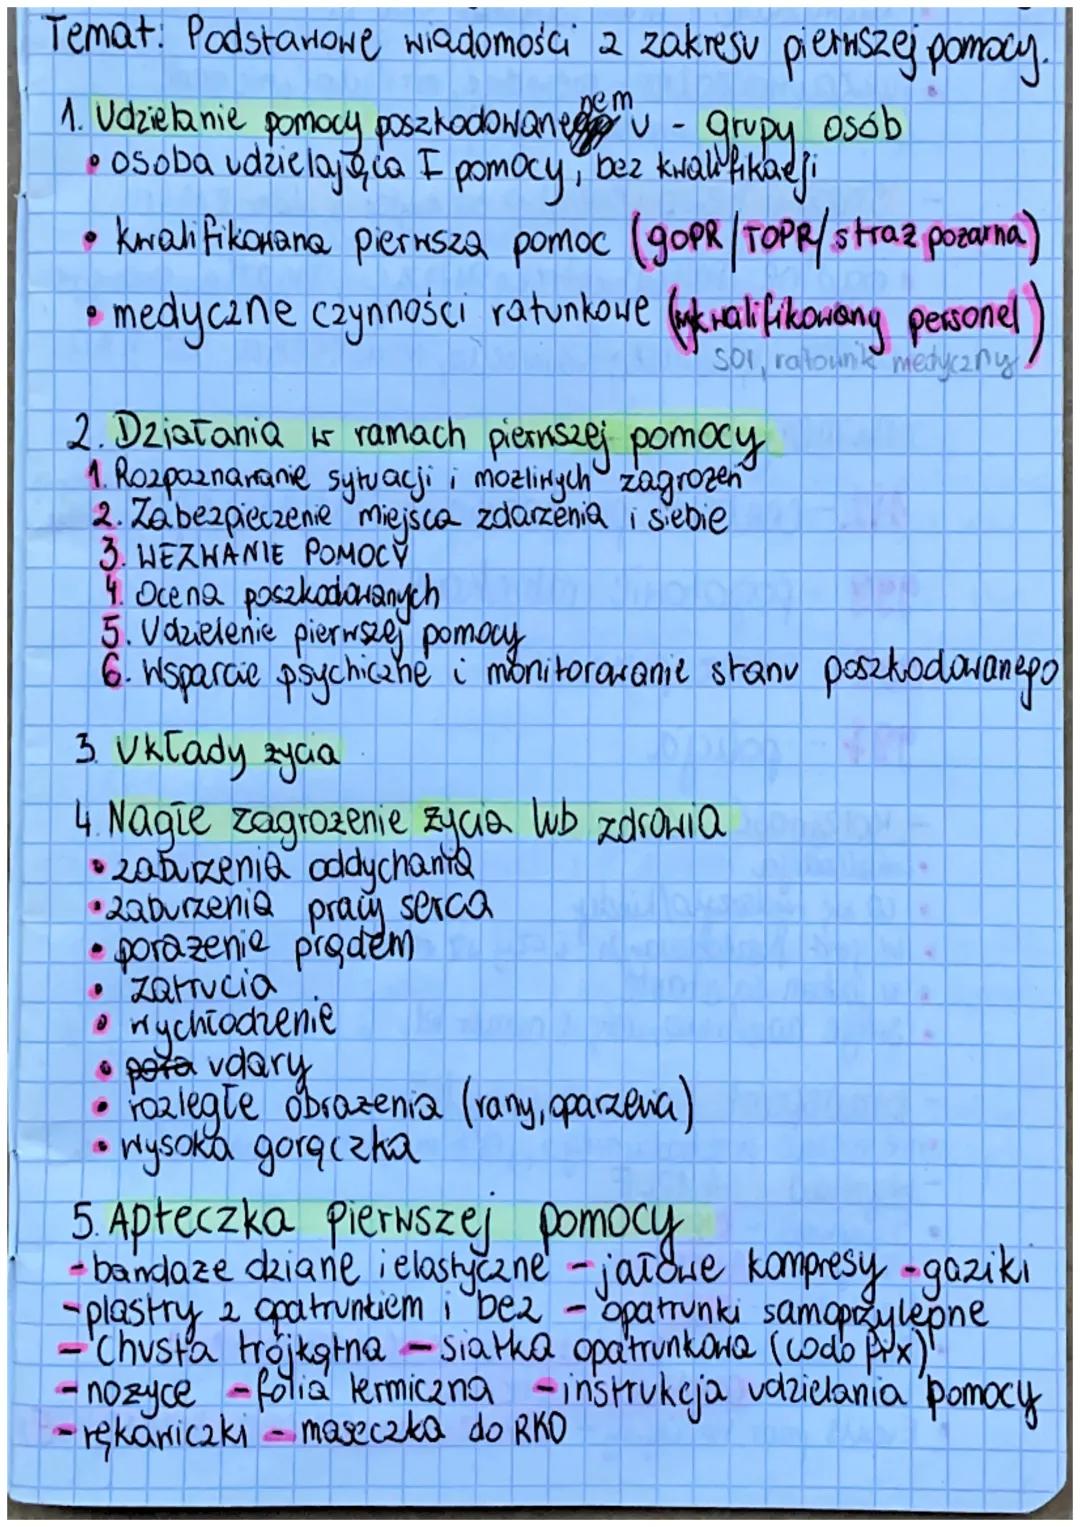 Temat: Podstawowe wiadomości z zakresu pierwszej pomocy.
1. Udzielanie pomocy poszkodowanem u - grupy osób
• osoba udzielająca I pomocy, bez kwalifikacji
• kwalifikowana pierwsza pomoc (GOPR/TOPR/straż pożarna)
• medyczne czynności ratunkowe (wykwalifikowany personel)
SOR, ratownik medyczny
2. Działania w ramach pierwszej pomocy
1. Rozpoznawanie sytuacji i możliwych zagrożeń
2. Zabezpieczenie miejsca zdarzenia i siebie
3. WEZWANIE POMOCY
4. Ocena poszkodowanych
5. Udzielenie pierwszej pomocy
6. Wsparcie psychiczne i monitorowanie stanu poszkodowanego
3. Układy życia
4. Nagłe zagrożenie życia lub zdrowia
• zaburzenia oddychania
• zaburzenia pracy serca
• porażenie prądem
• zatrucia
• wychłodzenie
• udary
• rozległe obrażenia (rany, oparzenia)
• wysoka gorączka
5. Apteczka pierwszej pomocy
- bandaże dziane i elastyczne - jałowe kompresy - gaziki
- plastry z opatrunkiem i bez - opatrunki samoprzylepne
- Chusta trójkątna - siatka opatrunkowa (codo fix)
- nożyce - folia termiczna - instrukcja udzielania pomocy
- rękawiczki - maseczka do RKO